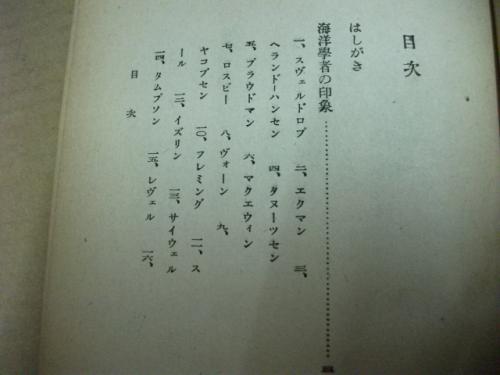 目次
はしがき
海洋學者の印象
一、スヴェルドロブ 二、エクマン 三、
ヘランド＝ハンセン 四、タヌーツセン
五、ブラウドマン 六、マクエウィン
七、ロスビー 八、ヴォーン 九、
ヤコブセン 一〇、フレミング 一一、ス
ール 一二、イズリン 一三、サイウェル
一四、タムプソン 一五、レヴェル 一六、
目次